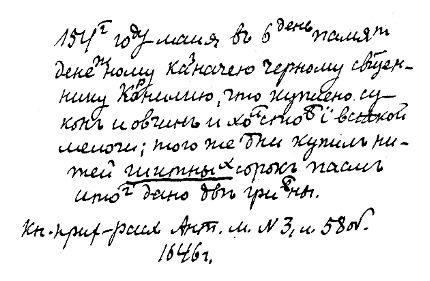 154г году маия въ 6 день памят
денежному казначею черному священ-
нику Камилию, что куплено су-
конъ и овчинъ и холстовъ і всякой
мелочи; того же дни купилъ ни-
тей шитных сорокъ пасмъ
итого дано двѣ гривны.
Кн. прих-расх Ант. м. N 3, л. 58 об.
1646 г,